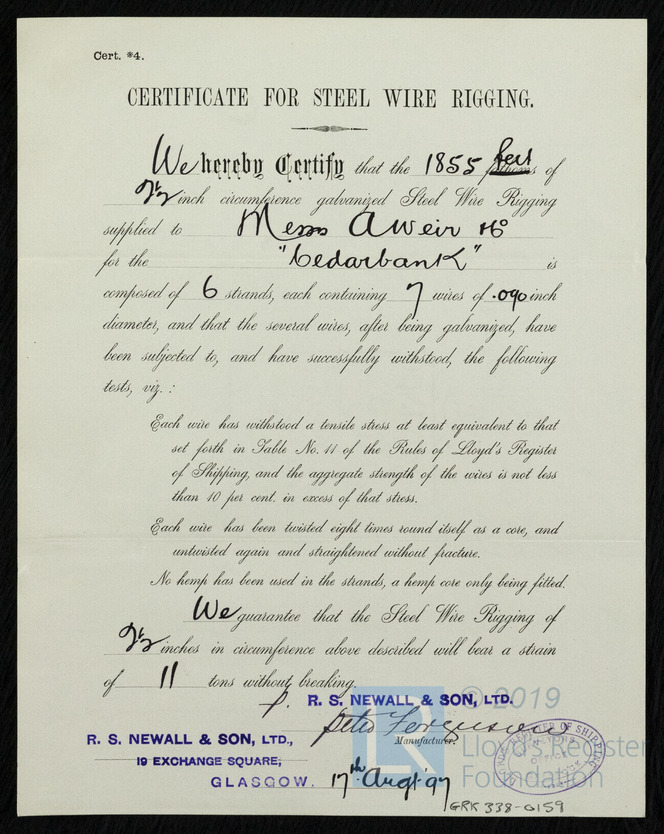 Cert. *4.
CERTIFICATE FOR STEEL WIRE RIGGING.
We hereby Certify that the 1855 feet fathoms of
2½ inch circumference galvanized Steel Wire Rigging
supplied to Messrs A Weir & Co
for the "Cedarbank" is
composed of 6 strands, each containing 7 wires of .090 inch
diameter, and that the several wires, after being galvanized, have
been subjected to, and have successfully withstood, the following
tests, viz. :
Each wire has withstood a tensile stress at least equivalent to that
set forth in Table No. 11 of the Rules of Lloyd's Register
of Shipping, and the aggregate strength of the wires is not less
than 10 per cent. in excess of that stress.
Each wire has been twisted eight times round itself as a core, and
untwisted again and straightened without fracture.
No hemp has been used in the strands, a hemp core only being fitted.
We guarantee that the Steel Wire Rigging of
2½ inches in circumference above described will bear a strain
of 11 tons without breaking.
p. R. S. NEWALL & SON, LTD.
Peter Ferguson
Manufacturer.
R. S. NEWALL & SON, LTD.,
19 EXCHANGE SQUARE,
GLASGOW. 17th Augt 97
GRK 338-0159
© 2019
LR
Lloyd's Register
Foundation
REGISTER OF SHIPPING